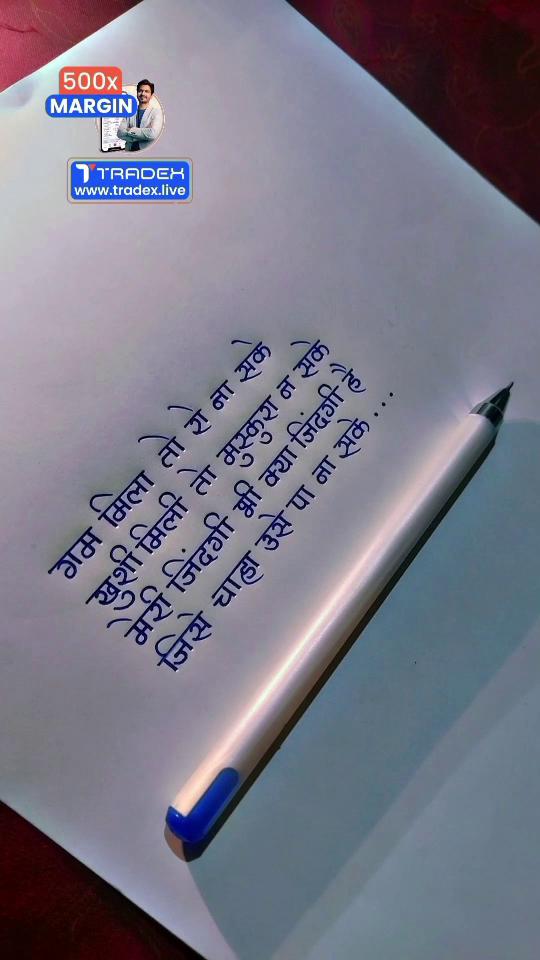 500x
MARGIN
TRADEX
www.tradex.live
गम मिला तो रो ना सके
खुशी मिली तो मुस्कुरा न सके
मेरी जिंदगी भी क्या जिंदगी है
जिसे चाहा उसे पा ना सके...